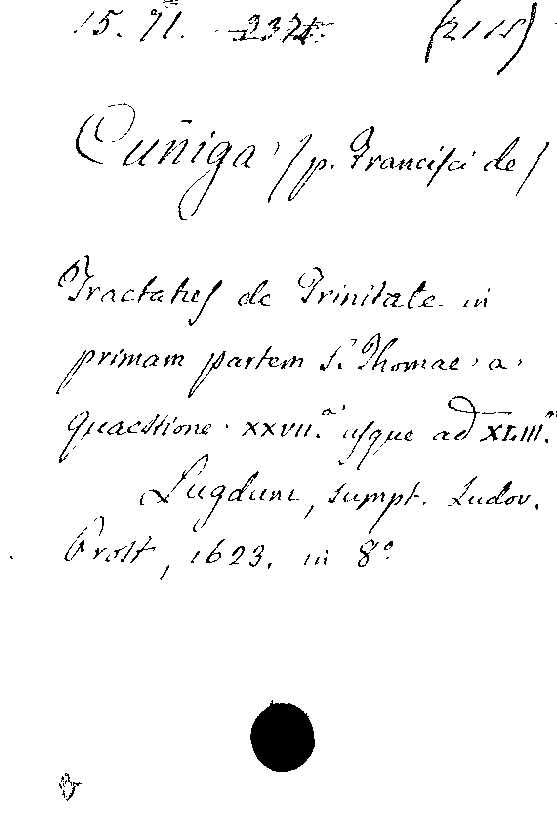 15. 71. 2371. (2115)
Cuñiga (p. Francisci de)
Tractatus de Trinitate in
primam partem S. Thomae a
quaestione XXVII.ª usque ad XLIII.ª
Lugduni, sumpt. Ludov.
Prost, 1623. in 8º